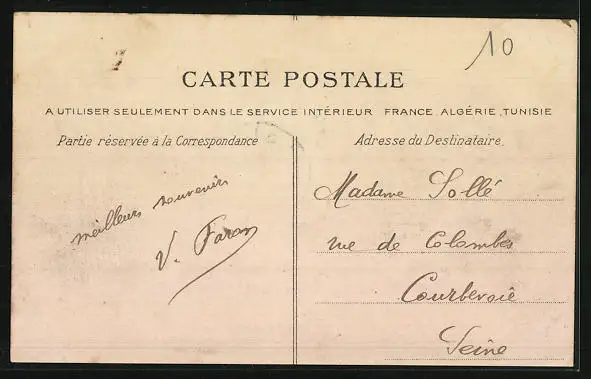 10
CARTE POSTALE
A UTILISER SEULEMENT DANS LE SERVICE INTÉRIEUR FRANCE, ALGÉRIE, TUNISIE
Partie réservée à la Correspondance
Adresse du Destinataire.
meilleurs souvenirs
V. Faron
Madame Sollé
rue de Colombes
Courbevoie
Seine